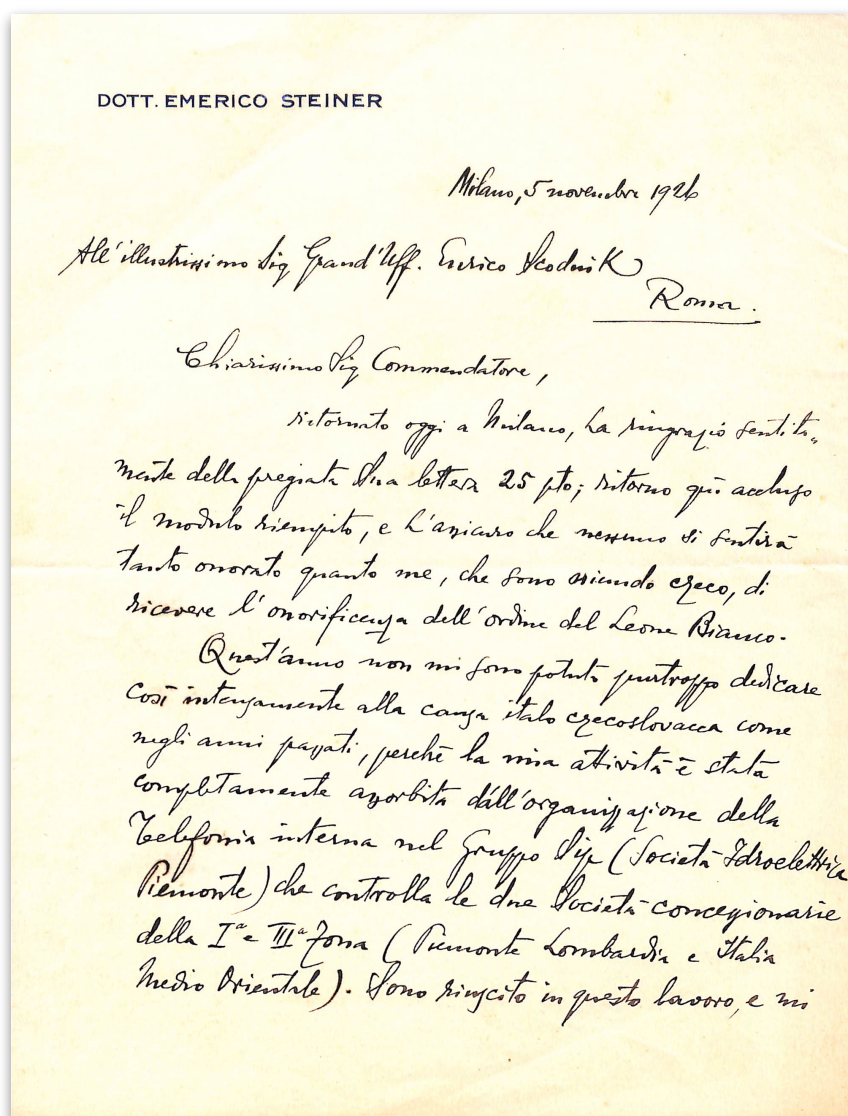 DOTT. EMERICO STEINER
Milano, 5 novembre 1926
All'illustrissimo Sig Grand'Uff. Enrico Scodnik
Roma.
Chiarissimo Sig Commendatore,
ritornato oggi a Milano, La ringrazio sentita„
mente della pregiata Sua lettera 25 pto; ritorno qui accluso
il modulo riempito, e L'assicuro che nessuno si sentirà
tanto onorato quanto me, che sono oriundo czeco, di
ricevere l'onorificenza dell'ordine del Leone Bianco.
Quest'anno non mi sono potuto purtroppo dedicare
così intensamente alla causa italo czecoslovacca come
negli anni passati, perchè la mia attività è stata
completamente assorbita dall'organizzazione della
Telefonia interna nel Gruppo Sip (Società Idroelettrica
Piemonte) che controlla le due Società concessionarie
della Iª e IIIª Zona (Piemonte Lombardia e Italia
Medio Orientale). Sono riuscito in questo lavoro, e mi